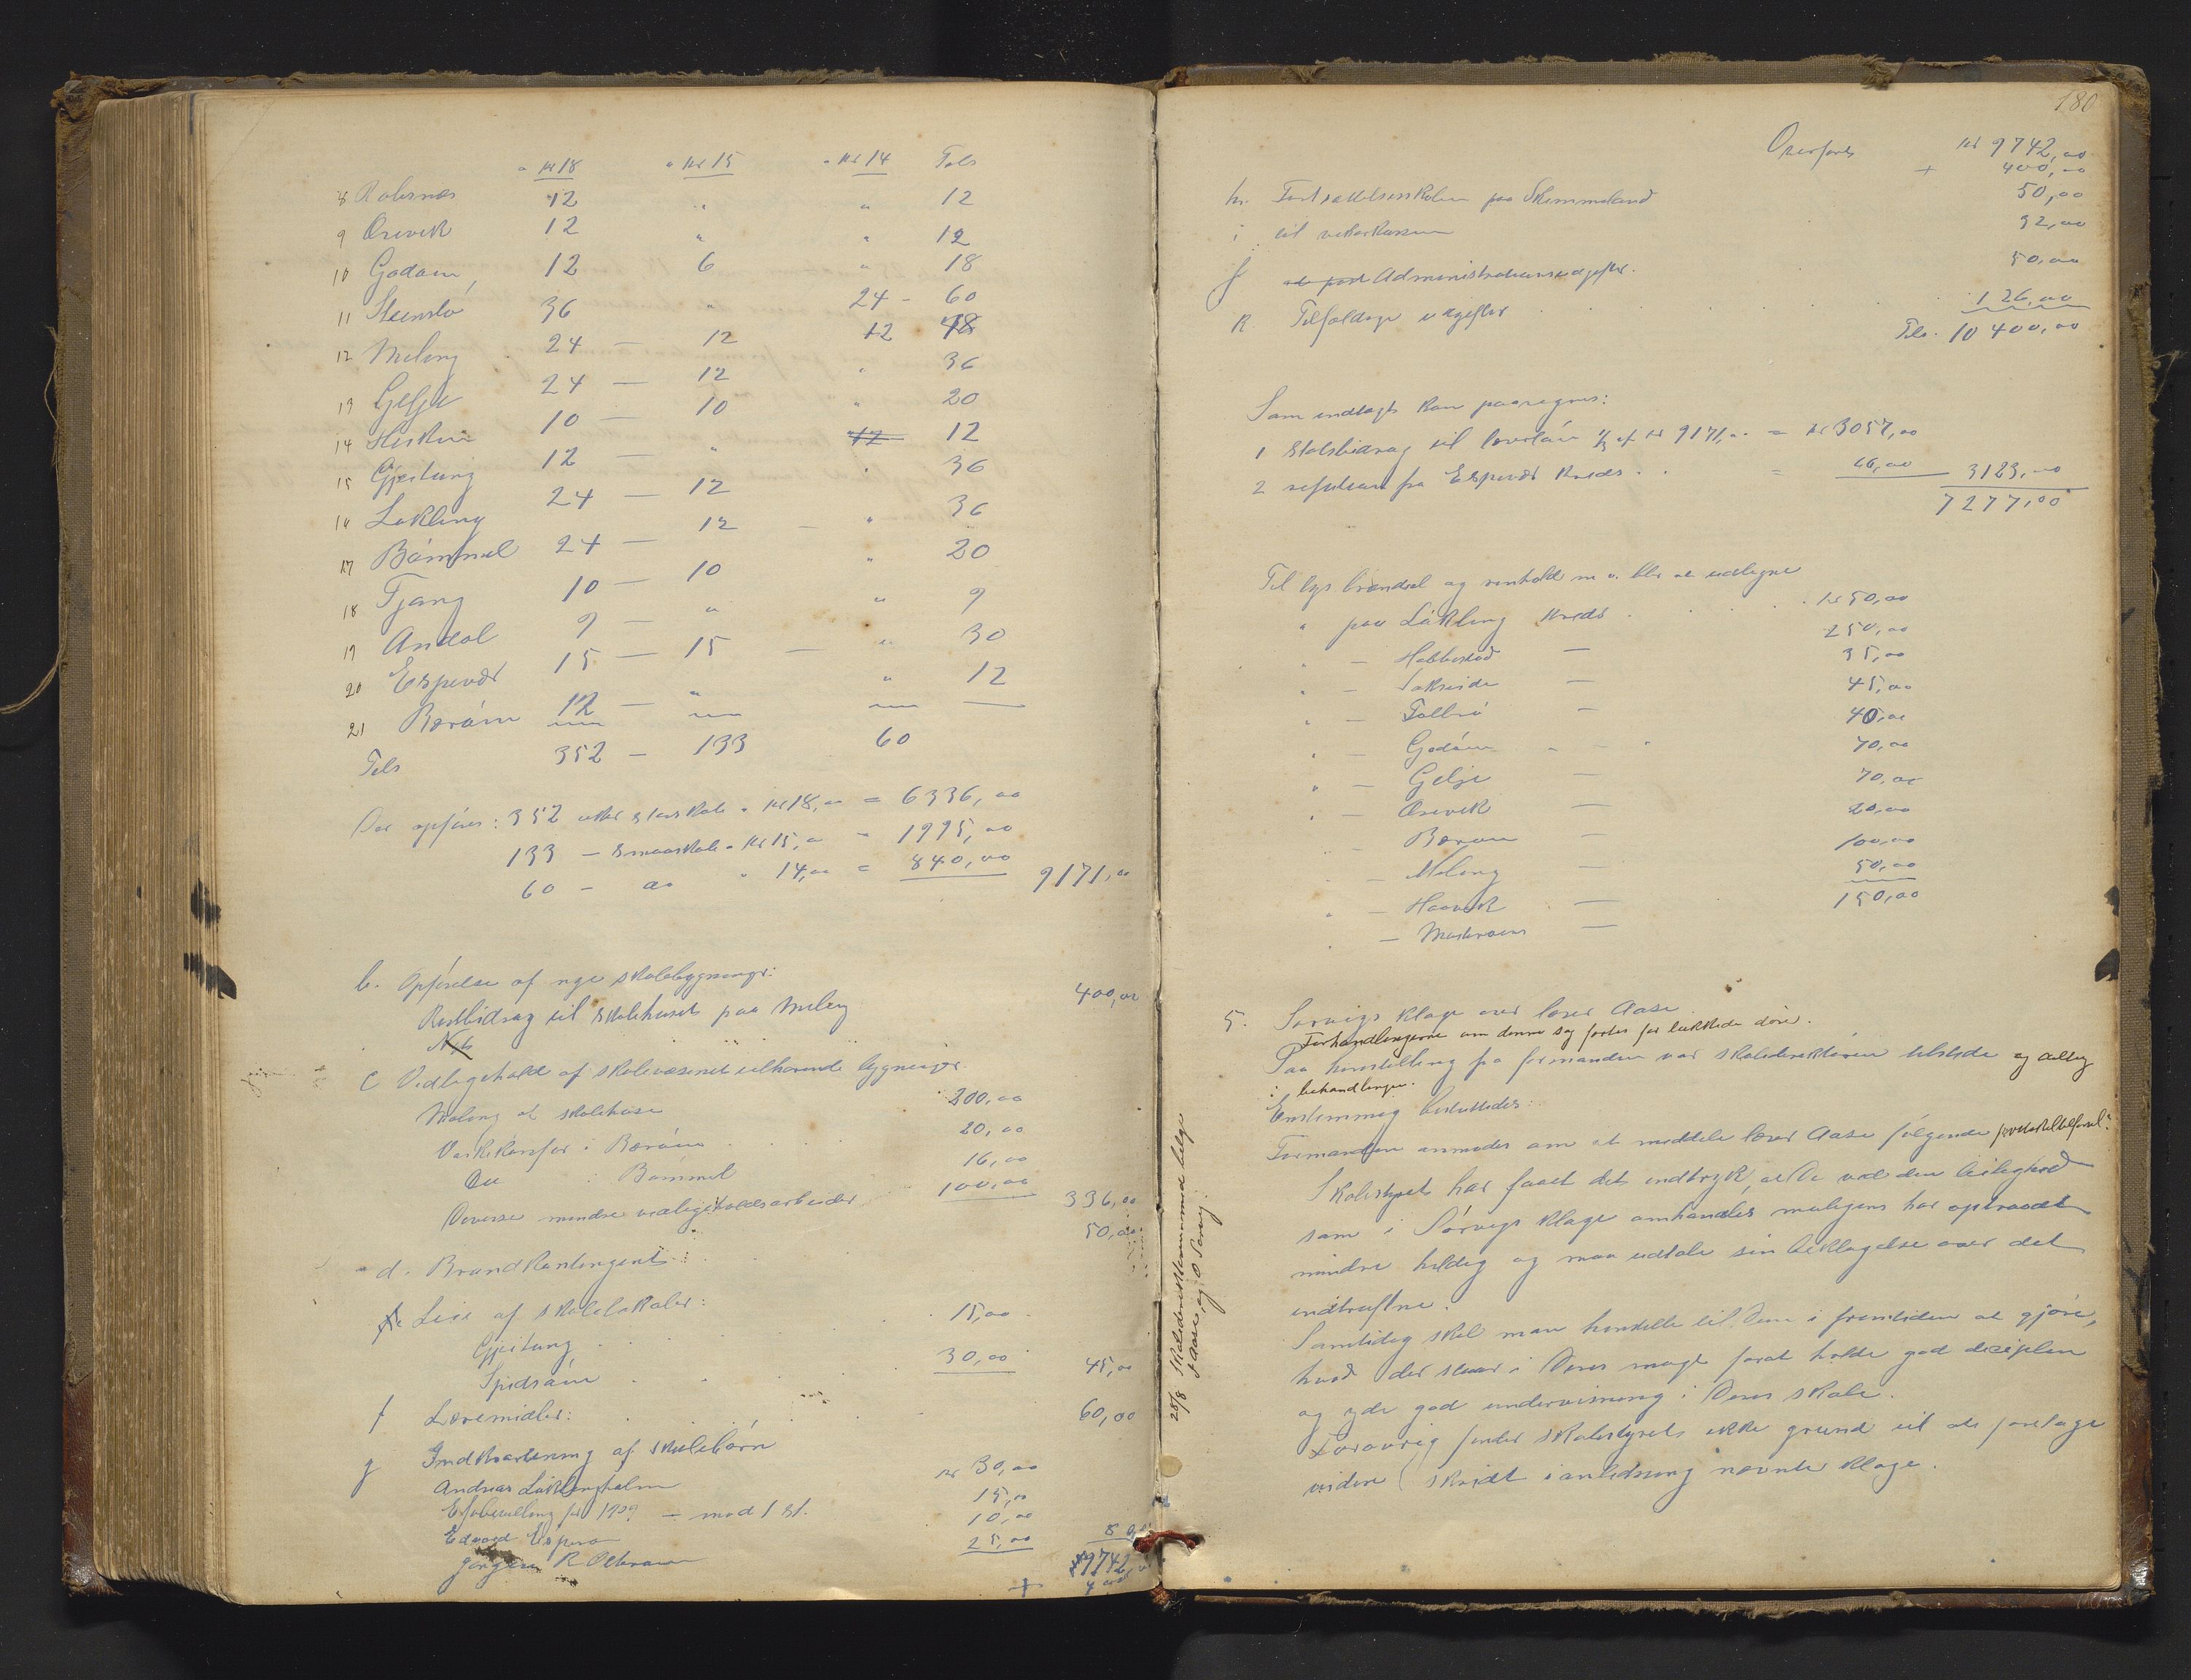 " kr 18 " kr 15 " kr 14 Tils
8 Robernæs 12 " " 12
9 Orevik 12 " " 12
10 Godøm 12 6 " 18
11 Stensbø 36 " 24 - 60
12 Meling 24 — 12 12 48
13 Gelje 24 — 12 " 36
14 Hisken 10 — 10 " 20
15 Gjeitung 12 — " 12 12
16 Løkling 24 — 12 " 36
17 Bømmel 24 — 12 — " 36
18 Tjong 10 — 10 " 20
19 Andal 9 — " " 9
20 Espevær 15 — 15 — " 30
21 Børøm 12 — " " 12
Tils 352 — 133 60
Der opføres: 352 uker storskole a kr 18,00 = 6336,00
133 — Smaaskole a kr 15,00 = 1995,00
60 — do " 14,00 = 840,00 9171,00
b. Opførelse af nye skolebygninger:
Restbidrag til skolehuset paa Meling 400,00
C Vedligehold af skolevæsenet tilhørende bygninger.
Maling af skolehuse 200,00
Vaskekomfur i Børøm 20,00
Do i Bømmel 16,00
Diverse mindre vedligeholdsarbeider 100,00 336,00
d. Brandkontingent 50,00
e Leie af skolelokaler:
Gjeitung 15,00
Spidsøm 30,00 45,00
f Læremidler: 60,00
g Indkvartering af skolebørn
Andreas Løklingholm kr 30,00
Efterbevilling for 1909 — mod 1 st. 15,00
Edvard Espevær 10,00
Jørgen R. 25,00 80,00
9742,00
+ 400
180
Overført kr 9742,00
+ 400,00
h. Fortsættelsesskolen paa Skimmeland 50,00
i til vikarkassen 32,00
j Administrationsudgifter. 50,00
k Tilfældige udgifter 126,00
Tils. 10 400,00
Som indtægt kan paaregnes:
1 Statsbidrag til lærerløn 1/3 af kr 9171,00 = kr 3057,00
2 refusion fra Espevær kreds = 66,00 3123,00
7277,00
Til lys brændsel og renhold m v. blir at udlegne
" paa Løkling kreds kr 50,00
" — Habbestad — 250,00
" — Sakseide — 35,00
" — Folbrø — 45,00
" — Godøm " - " 40,00
" — Gelje — 70,00
" — Orevik — 70,00
" — Børøm — 20,00
" — Meling — 100,00
" — Haavik — 50,00
— — 150,00
5. Sørvigs klage over lærer Aase
Forhandlingerne om denne sag førtes for lukkede døre.
Paa henstilling fra formanden var skoledirektøren tilstede og deltog
i behandlingen.
Enstemmig besluttedes:
Formanden anmodes om at meddele lærer Aase følgende protokoltilførsel:
Skolestyret har faaet det indtryk, at De ved den leilighed
som i Sørvigs klage omhandles muligens har optraadt
mindre heldig og maa udtale sin beklagelse over det
indtrufne.
Samtidig skal man henstille til Dem i fremtiden at gjøre,
hvad der staar i Deres magt forat holde god disciplin
og yde god undervisning i Deres skole.
Forøvrig finder skolestyret ikke grund til at foretage
videre skridt i anledning nævnte klage.
25/8 Skoledirektøren med bilag
+ Aase og O Sørvig.